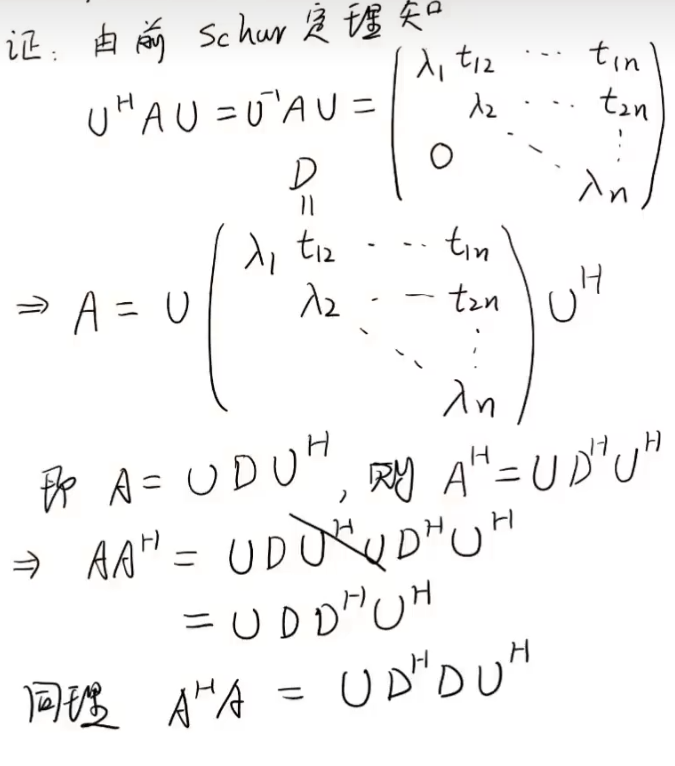 证: 由前 Schur 定理知
U^H A U = U^{-1} A U = ( λ1 t12 ⋯ t1n
λ2 ⋯ t2n
0 ⋱ ⋮
λn )
D
||
⇒ A = U ( λ1 t12 ⋯ t1n
λ2 ⋯ t2n
⋱ ⋮
λn ) U^H
即 A = U D U^H, 则 A^H = U D^H U^H
⇒ AA^H = U D U^H U D^H U^H
= U D D^H U^H
同理 A^H A = U D^H D U^H